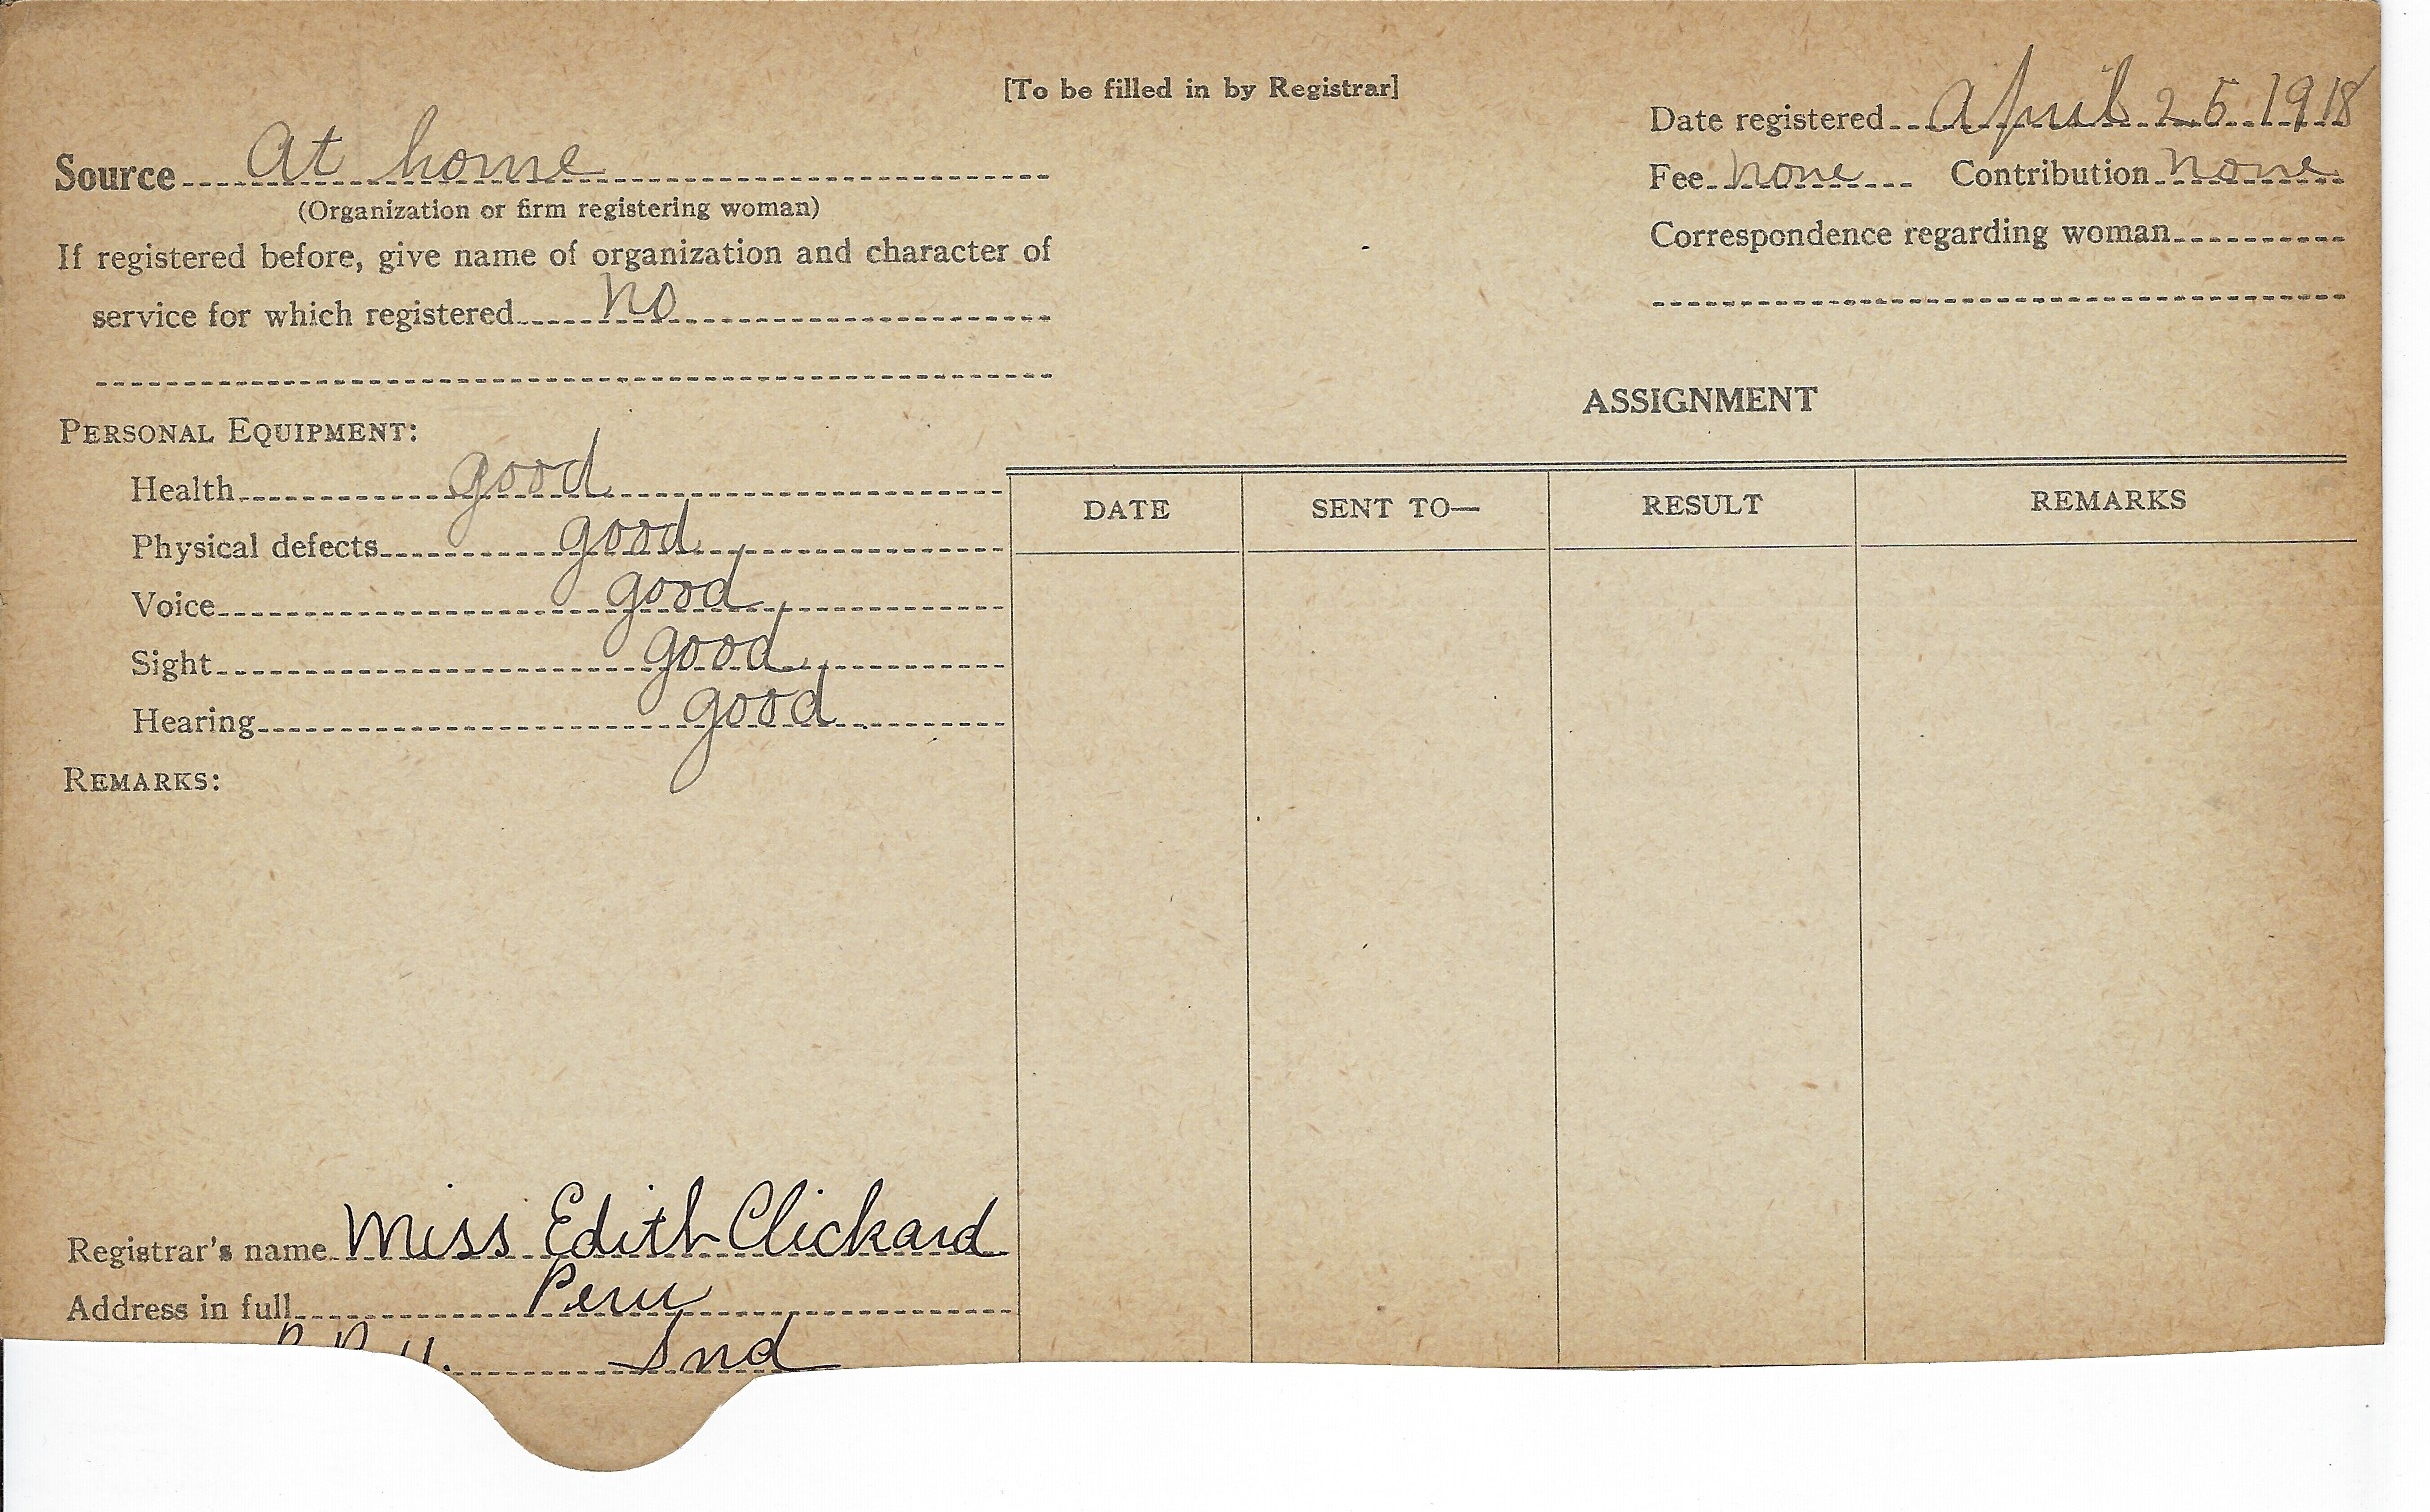 [To be filled in by Registrar]
Date registered April 25 1918
Source At home
Fee none Contribution none
(Organization or firm registering woman)
Correspondence regarding woman
If registered before, give name of organization and character of
service for which registered no
ASSIGNMENT
PERSONAL EQUIPMENT:
Health good
Physical defects good
Voice good
Sight good
Hearing good
DATE SENT TO— RESULT REMARKS
REMARKS:
Registrar's name Miss Edith Clickard
Address in full Peru
Ind